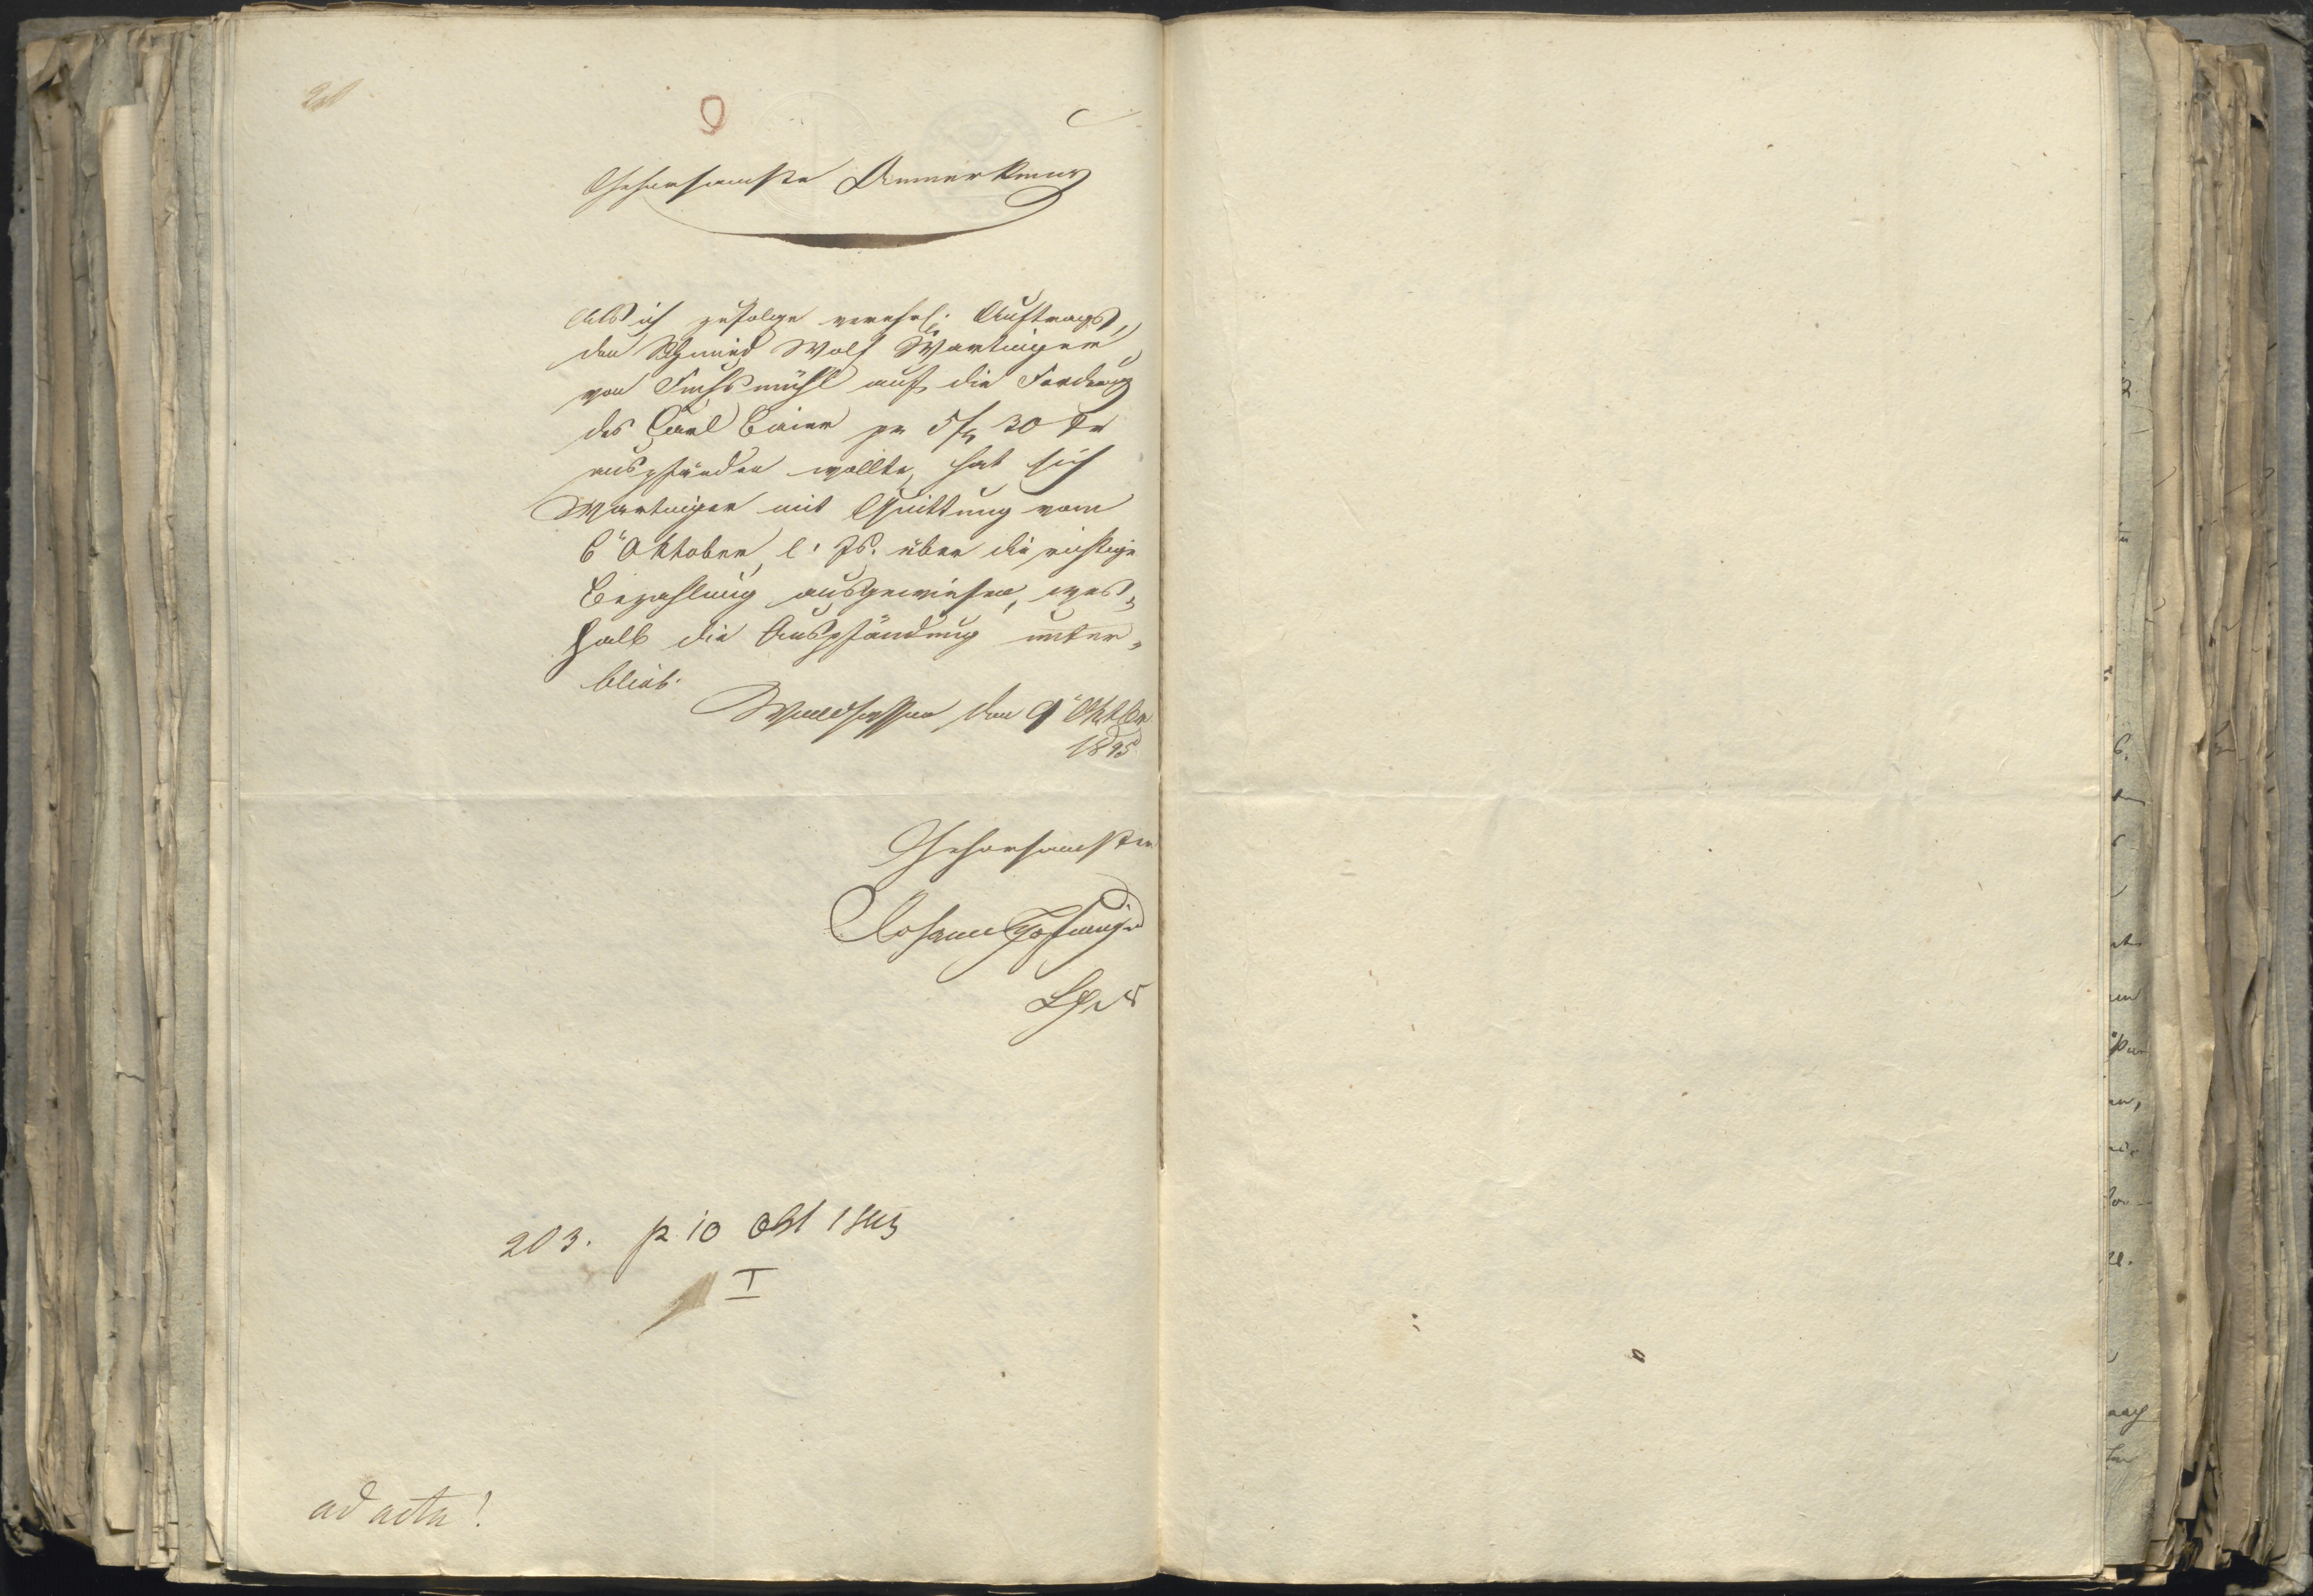 Gehorsamste Anmerkung
Als ich zufolge verehrl. Auftrags,
den Schmied Wolf Wartinger
von Fuchsmühl auf die Forderung
des Carl Baier pr 5 f 30 kr
auspfänden wollte, hat sich
Wartinger mit Quittung vom
6" Oktober l. Js. über die richtige
Bezahlung ausgewiesen, wes„
halb die Auspfändung unter„
blieb.
Waldsassen den 9" Oktbr
1845
Gehorsamster
Johann
203. p 10 Okt 1845
I
ad acta!